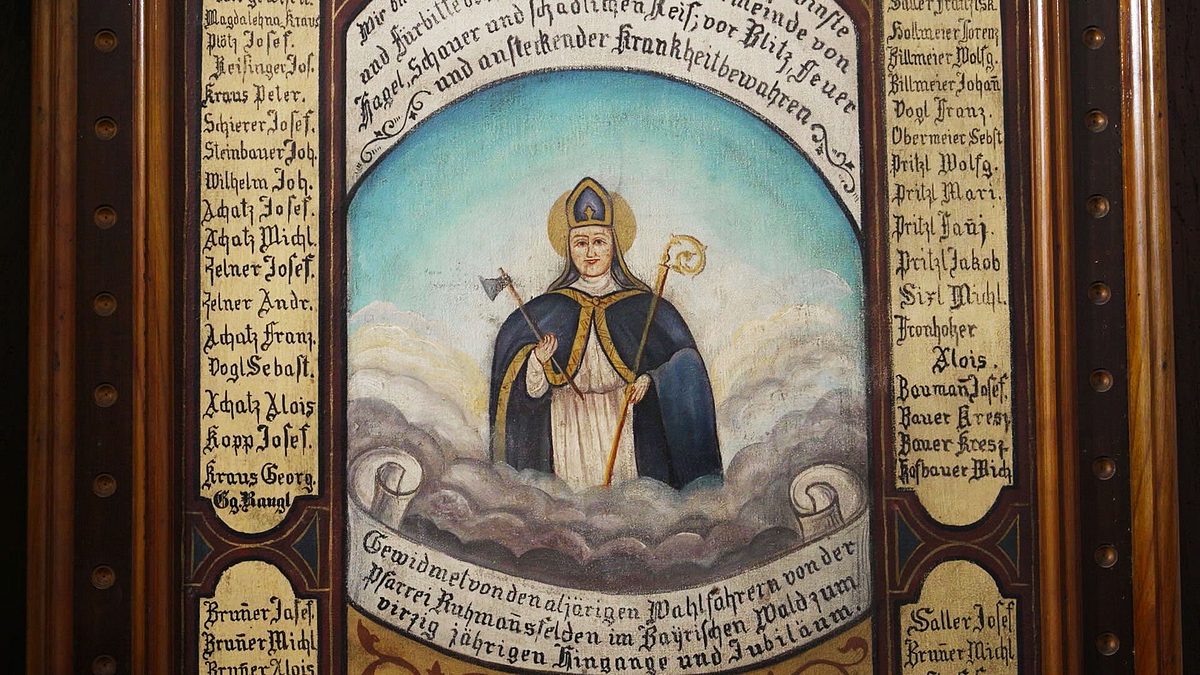 Magdalehna Kraus
Plötz Josef.
Reisinger Jos.
Kraus Peter.
Schierer Josef.
Steinbauer Joh.
Wilhelm Joh.
Achatz Josef.
Achatz Michl.
Zelner Josef.
Zelner Andr.
Achatz Franz.
Vogl Sebast.
Achatz Alois
Kopp Josef.
Kraus Georg.
Gg. Rangl
Bruñer Josef.
Bruñer Michl.
Bruñer Alois
Wir
meinde von
und Fürbitte
und schädlichen Reif, vor Blitz, Feuer
Hagel, Schauer
und ansteckender Krankheit bewahren.
Gewidmet von den aljörigen Wahlfahrern von der
Pfarrei Ruhmañsfelden im Bayrischen Wald zum
virzig jährigen Hingange und Jubiläum.
Hollmeier Lorenz
Billmeier Wolfg.
Billmeier Johañ
Vogl Franz.
Obermeier Sebst
Pritzl Wolfg.
Pritzl Mari.
Pritzl Fañj.
Pritzl Jakob
Sixl Michl.
Fronholzer
Alois.
Baumañ Josef.
Bauer Kresz
Bauer Kresz.
Hofbauer Mich
Saller Josef
Bruñer Michl